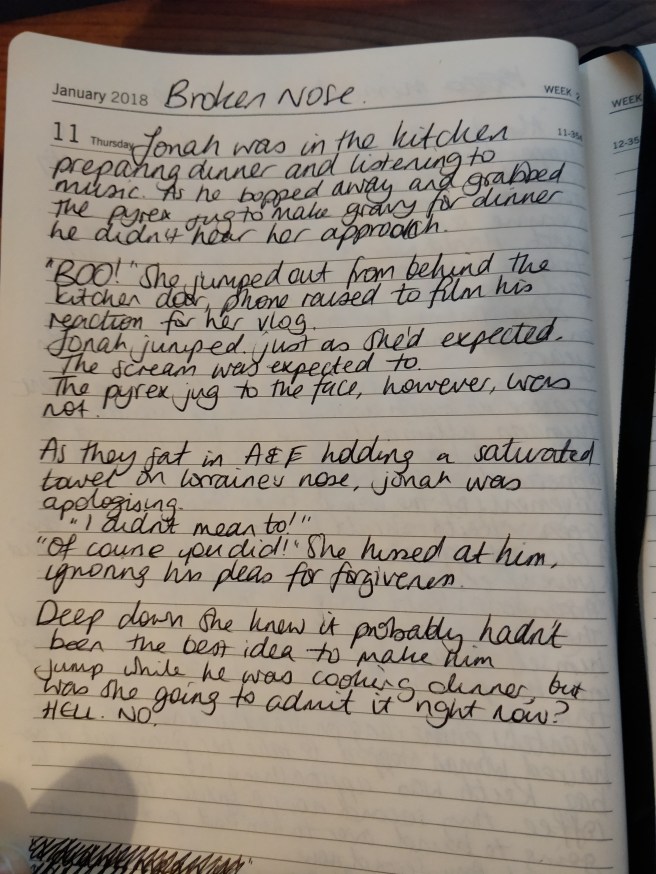 January 2018 Broken Nose. WEEK 2
11 Thursday Jonah was in the kitchen 11-354
preparing dinner and listening to
music. As he bopped away and grabbed
the pyrex jug to make gravy for dinner
he didn't hear her approach.
"BOO!" She jumped out from behind the
kitchen door, phone raised to film his
reaction for her vlog.
Jonah jumped just as she'd expected.
The scream was expected to.
The pyrex jug to the face, however, was
not.
As they sat in A&E holding a saturated
towel on Lorraines nose, Jonah was
apologising.
"I didn't mean to!"
"Of course you did!" She hissed at him,
ignoring his pleas for forgiveness.
Deep down she knew it probably hadn't
been the best idea to make him
jump while he was cooking dinner, but
was she going to admit it right now?
HELL. NO.
WEEK
12-35